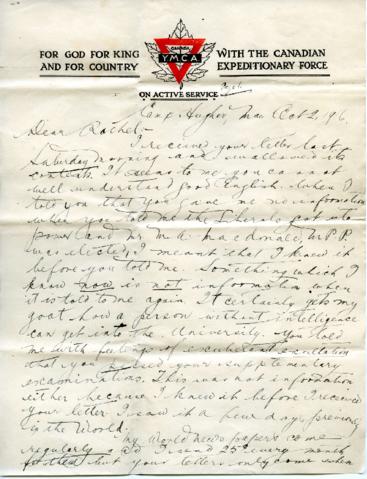 FOR GOD FOR KING
AND FOR COUNTRY
CANADA
Y.M.C.A
WITH THE CANADIAN
EXPEDITIONARY FORCE
ON ACTIVE SERVICE
Camp Hughes, Man Oct 2, 1916.
Dear Rachel,-
I received your letter last
Saturday morning and swallowed its
contents. It seems to me you cannot
well understand good English. When I
told you that you gave me no information
when you told me the Liberals got into
power and Mr M.A. Macdonald, M.P.P.
was elected, I meant that I knew it
before you told me. Something which I
know now is not information when
it is told to me again. It certainly gets my
goat how a person without intelligence
can get into the University. You told
me with feelings of exuberant exultation
that you passed your supplementary
examinations. This was not information
either because I knew it before I received
your letter. I saw it a few days previous
in the World.
My World newspapers come
regularly and I send 25¢ every month
for them but your letters only come when